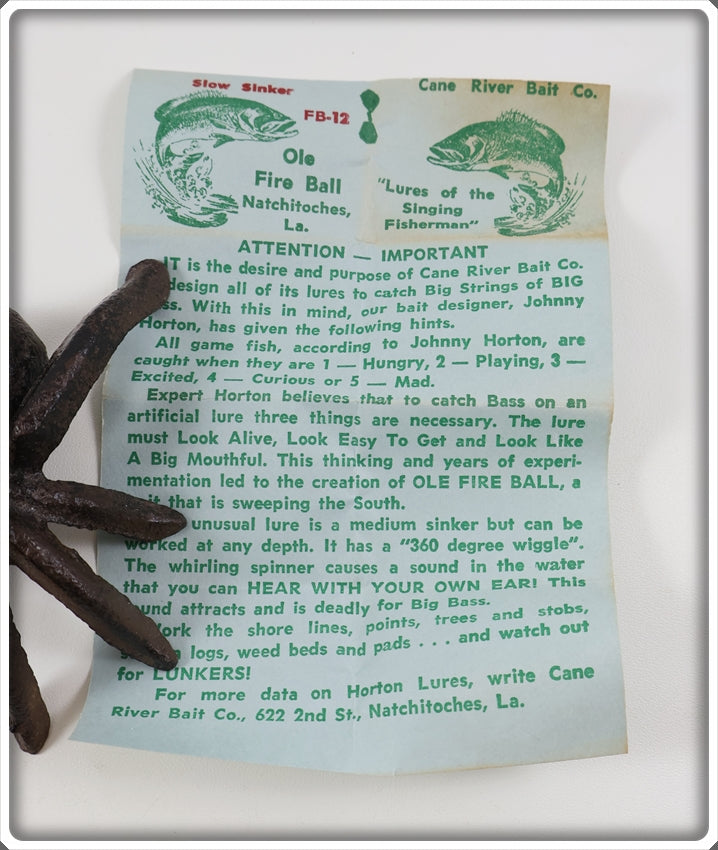 Slow Sinker
FB-12
Ole
Fire Ball
Natchitoches,
La.
Cane River Bait Co.
"Lures of the
Singing
Fisherman"
ATTENTION — IMPORTANT
IT is the desire and purpose of Cane River Bait Co.
design all of its lures to catch Big Strings of BIG
ss. With this in mind, our bait designer, Johnny
Horton, has given the following hints.
All game fish, according to Johnny Horton, are
caught when they are 1 — Hungry, 2 — Playing, 3 —
Excited, 4 — Curious or 5 — Mad.
Expert Horton believes that to catch Bass on an
artificial lure three things are necessary. The lure
must Look Alive, Look Easy To Get and Look Like
A Big Mouthful. This thinking and years of experi-
mentation led to the creation of OLE FIRE BALL, a
it that is sweeping the South.
unusual lure is a medium sinker but can be
worked at any depth. It has a "360 degree wiggle".
The whirling spinner causes a sound in the water
that you can HEAR WITH YOUR OWN EAR! This
und attracts and is deadly for Big Bass.
ork the shore lines, points, trees and stobs,
logs, weed beds and pads . . . and watch out
for LUNKERS!
For more data on Horton Lures, write Cane
River Bait Co., 622 2nd St., Natchitoches, La.